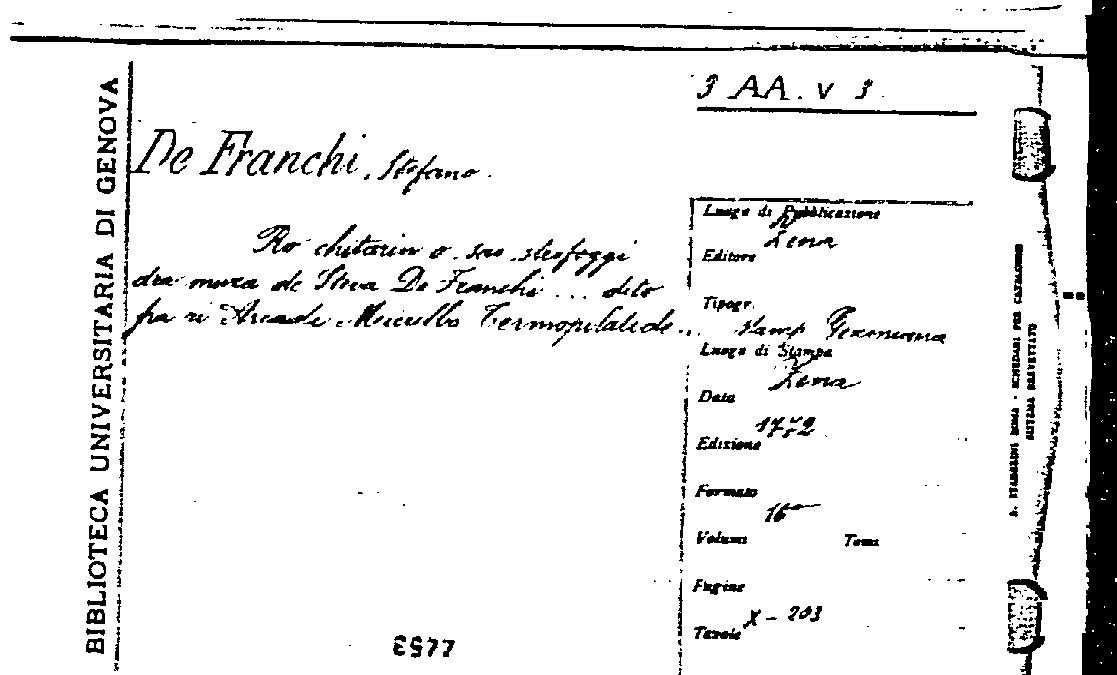 BIBLIOTECA UNIVERSITARIA DI GENOVA
3 AA. V 3.
De Franchi, Stefano.
Ro chitarin o sæ strofoggi
dra muza de Steva De Franchi ... dito
fra ri Arcade Micrilbo Termopilatide ...
Luogo di Pubblicazione
Zena
Editore
Tipogr.
Stamp Gexiniana
Luogo di Stampa
Zena
Data
1772
Edizione
Formato
16°
Volumi Tomi
Pagine
X - 203
Tavole
STADERINI ROMA - SCHEDARI PER CATALOGHI
SISTEMA BREVETTATO